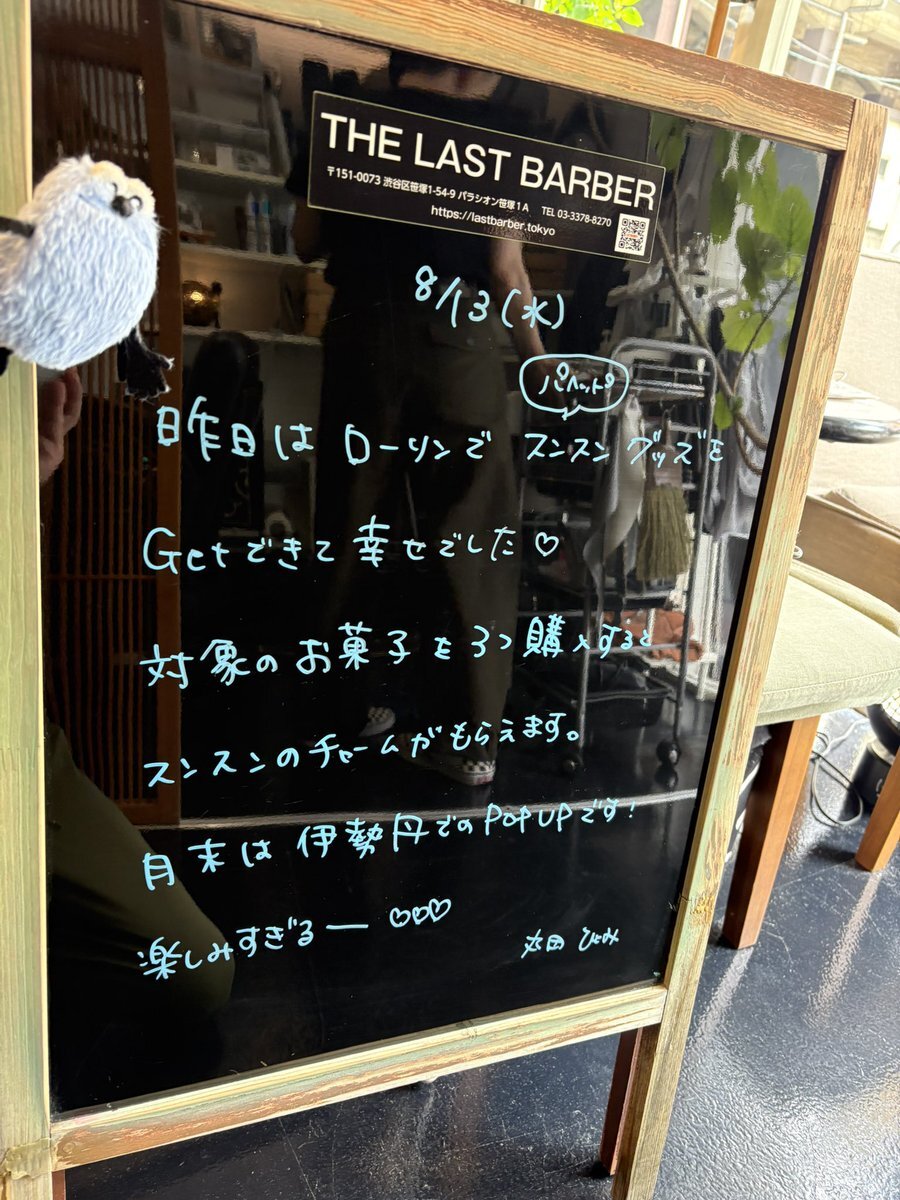 THE LAST BARBER
〒151-0073 渋谷区笹塚1-54-9 パラシオン笹塚1A TEL 03-3378-8270
https://lastbarber.tokyo
8/13(水)
パペット
昨日は ローソンで スンスン グッズを
Getできて 幸せでした♡
対象の お菓子を 3つ購入すると
スンスンのチャームがもらえます。
月末は 伊勢丹でのPOPUPです!
楽しみすぎるー ♡♡♡